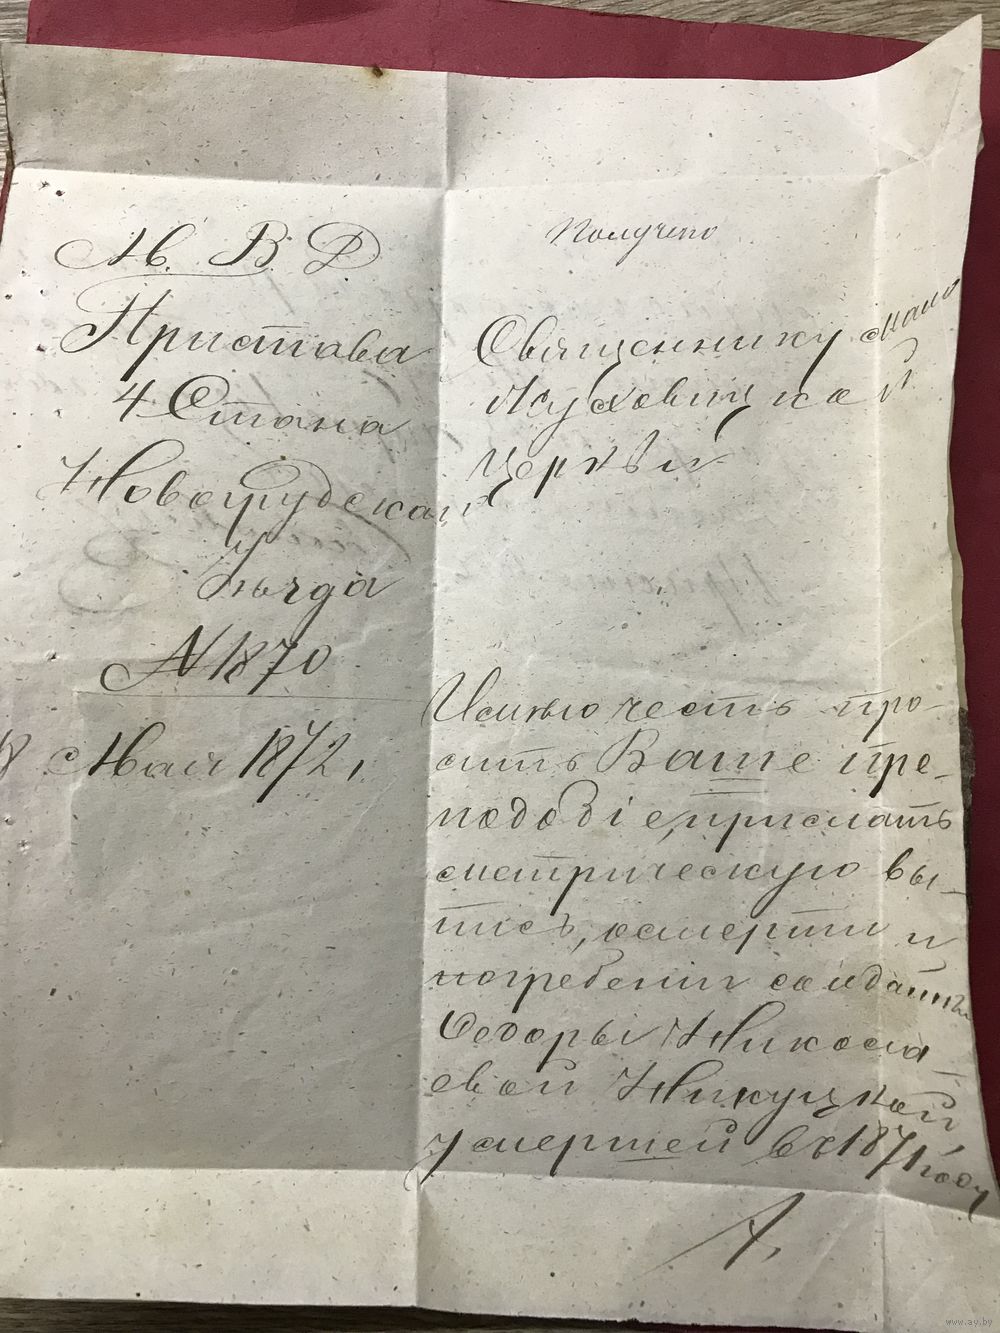 М. В. Д
Пристава
4 Стана
Новогрудскаго
Уѣзда
N 1870
18 Мая 1872 г.
Получено
Священнику мало
Жуховицкой
Церкви
Имѣю честь про-
сить Ваше пре-
подобіе, прислать
метрическую вы-
пись, о смерти и
погребеніи солдатки
Ѳедоры Никола
евой Никуцкой
умершей въ 1871 году
А.
www.ay.by